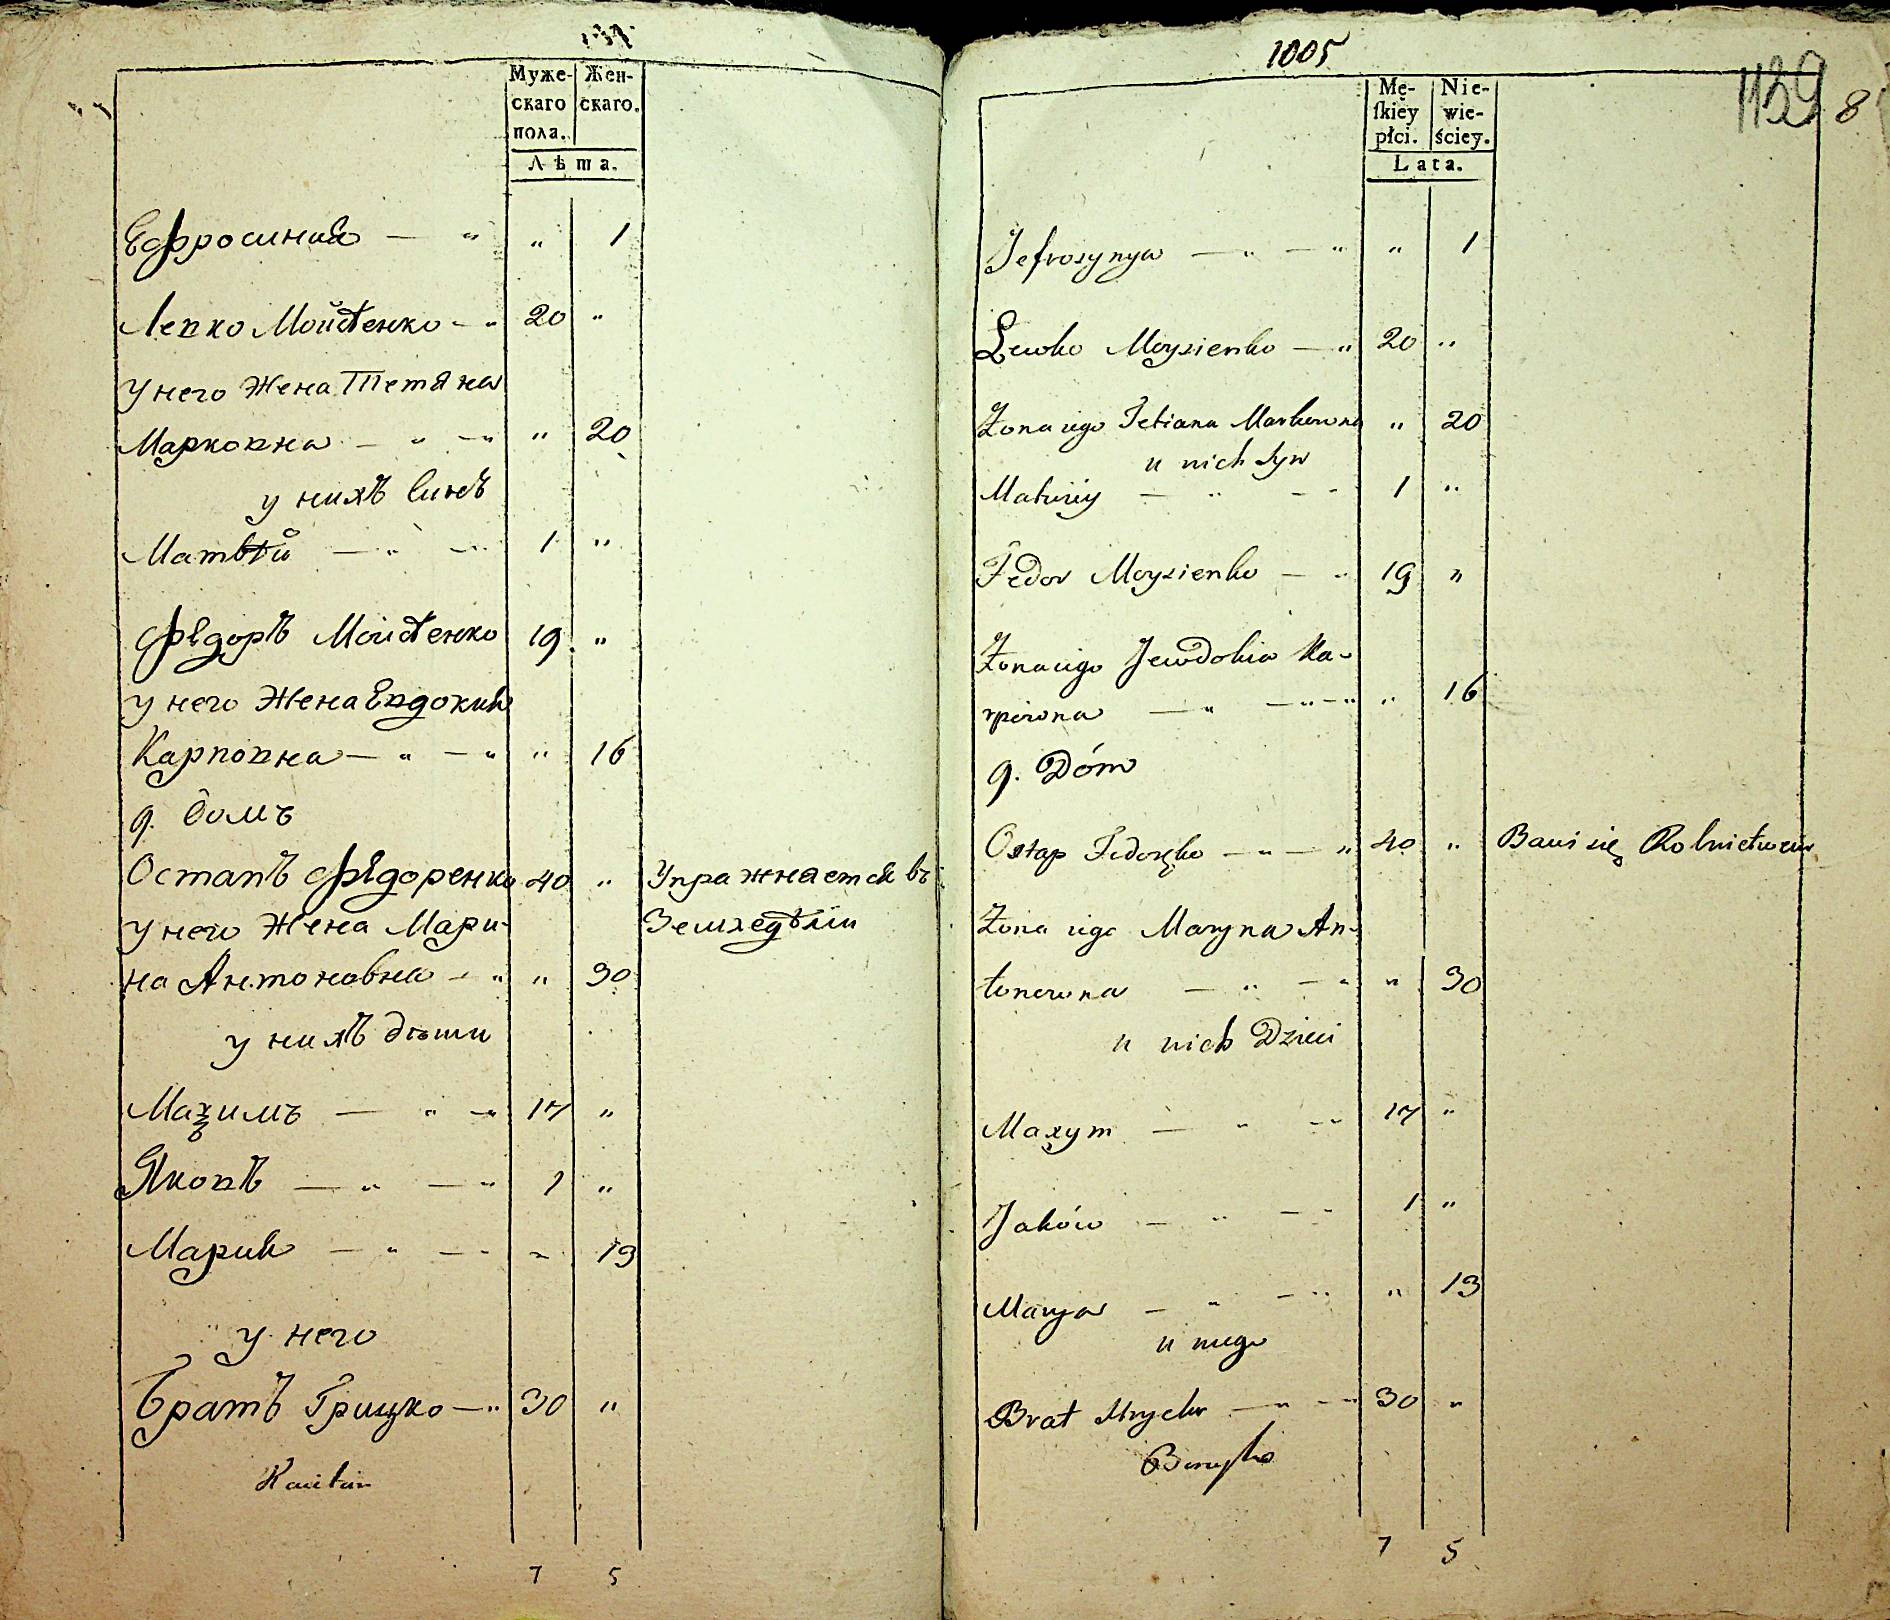 Муже-
скаго
пола.
Жен-
скаго.
Лѣта.
Ефросиния — " " 1
Левко Мойсѣенко — " 20 "
у него Жена Тетяна
Марковна — " — " " 20
у нихъ Синъ
Матвѣй — " — " 1 "
Фѣдоръ Мойсѣенко 19 "
у него Жена Евдокия
Карповна — " — " " 16
9. Домъ
Остапъ Фѣдоренко 40 " Упражняется въ
у него Жена Мари- Земледѣлïи
на Антоновна — " " 30
у нихъ дѣти
Маѯимъ — " — " 17 "
Яковъ — " — " 1 "
Мария — " — " " 13
у него
Братъ Грицко — " 30 "
7 5
1005
1139 8
Mę-
ſkiey
płci.
Nie-
wie-
ściey.
Lata.
Jefrosynya — " — " " 1
Lewko Moysienko — " 20 "
Żona iego Tetiana Markowna " 20
u nich Syn
Matwiy — " — " 1 "
Fedor Moysienko — " 19 "
Żona iego Jewdokia Ka-
rpowna — " — " — " " 16
9. Dóm
Ostap Fedoręko — " — " 40 " Bawi się Rolnictwem
Żona iego Maryna An-
tonowna — " — " " 30
u nich Dzieci
Maxym — " — " 17 "
Jaków — " — " 1 "
Marya — " — " " 13
u niego
Brat Hrycko — " — " 30 "
7 5